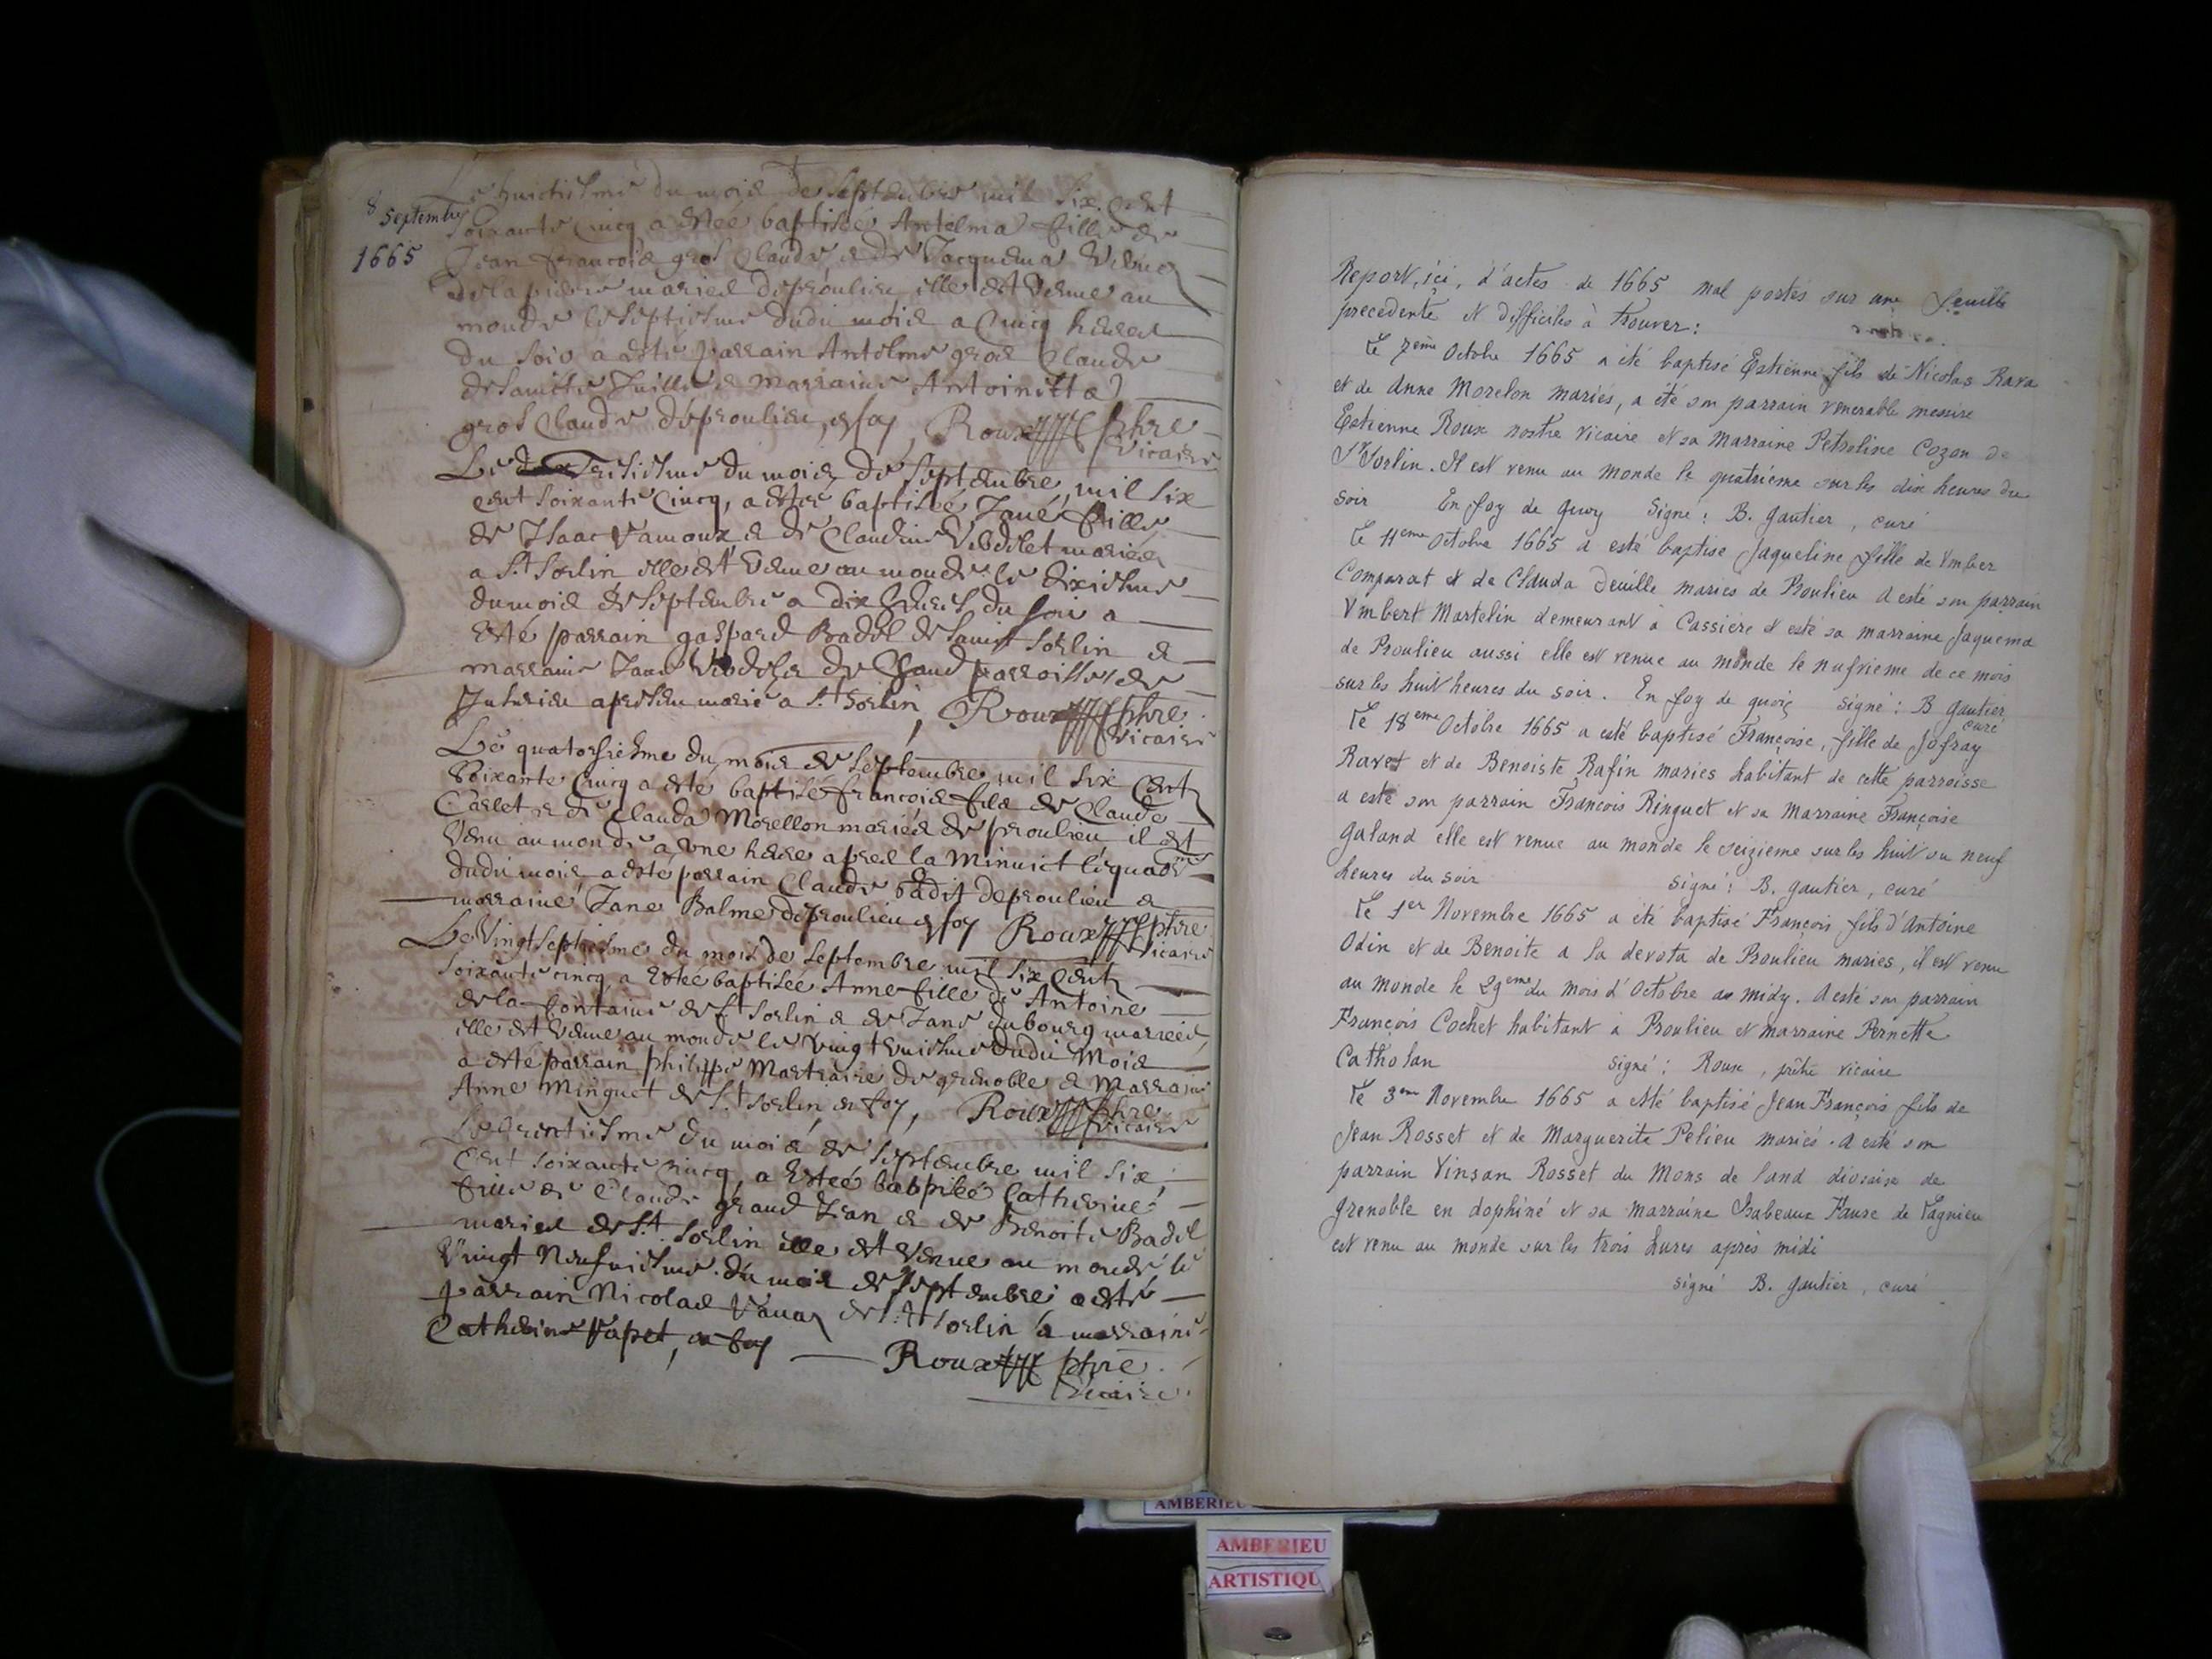 8 septembre
1665
Le huictiesme du mois de Septembre mil six cent
soixante cinq a estée baptisée Antelma fille de
Jean francois gros Claude & de Jacquema
de la pierre mariés de proulieu elle est venue au
monde le septiesme dudit mois a cinq heures
du soir a esté parrain Antelme gros Claude
de saincte Jullie & marraine Antoinette
gros Claude de proulieu, en foy, Roux ptbre
vicaire
Le tresiesme du mois de Septembre, mil six
cent soixante cinq, a estée baptisée Jane fille
de Isaac Vamoux & de Claudine mariés
a St Sorlin elle est venue au monde le dixiesme
du mois de septembre a dix heures du soir a
esté parrain gaspard Badel de sainct Sorlin &
marraine de parroisse de
a St Sorlin, Roux ptbre
vicaire
Le quatorsiesme du mois de Septembre mil six cent
soixante cinq a esté baptisé francois fils de Claude
Carlet & de Clauda Morellon mariés de proulieu il est
venu au monde a une heure apres la minuict
dudit mois a esté parrain Claude badit de proulieu &
marraine Jane Balme de proulieu en foy Roux ptbre
vicaire
Le Vingt septiesme du mois de septembre mil six cent
soixante cinq, a estée baptisée Anne fille de Antoine
de la fontaine de St Sorlin & de Jane dubourg mariés
elle est venue au monde le vingt dudit mois
a esté parrain philippe Martraire de grenoble & marraine
Anne Minguet de St Sorlin en foy, Roux ptbre
vicaire
Le trentiesme du mois de septembre mil six
cent soixante cinq, a estée baptisée Catherine
fille de Claude grand Jean & de Benoite Badel
mariés de St Sorlin elle est venue au monde le
vingt neufviesme du mois de septembre a esté
parrain Nicolas de St Sorlin sa marraine
Catherine Vapet, en foy Roux ptbre
vicaire
Report, içi, d'actes de 1665 mal portés sur une feuille
precedente et difficiles à trouver:
Le 7eme Octobre 1665 a été baptisé Estienne fils de Nicolas Rava
et de Anne Morelon mariés, a été son parrain venerable messire
Estienne Roux nostre vicaire et sa Marraine Petroline Cozon de
St Sorlin. Il est venu au monde le quatrième sur les dix heures du
soir En foy de quoy Signé: B. gautier, curé
Le 11eme Octobre 1665 a esté baptise Jaqueline fille de Vmber
Comparat et de Clauda Deuille maries de Proulieu a esté son parrain
Vmbert Martelin demeurant à Cassiere et esté sa marraine Jaquema
de Proulieu aussi elle est venue au monde le nufvieme de ce mois
sur les huit heures du soir. En foy de quoiç Signé: B gautier
curé
Le 18eme Octobre 1665 a esté baptisé Françoise, fille de Jofray
Ravet et de Benoiste Rafin maries habitant de cette parroisse
a esté son parrain François Ringuet et sa Marraine Françoise
galand elle est venue au monde le seizieme sur les huit ou neuf
heures du soir signé: B. gautier, curé
Le 1er Novembre 1665 a été baptisé François fils d'Antoine
Odin et de Benoite a la devota de Proulieu maries, il est venu
au monde le 29eme du mois d'Octobre au midy. A esté son parrain
François Cochet habitant à Proulieu et marraine Pernette
Catholan signé: Roux, prêtre vicaire
Le 3eme Novembre 1665 a esté baptisé Jean François fils de
Jean Rosset et de Marguerite Pelieu mariés. A esté son
parrain Vinsan Rosset du Mons de land diosaise de
grenoble en dophiné et sa marraine Isabeaux Faure de Lagnieu
est venu au monde sur les trois hures après midi
signé B. gautier, curé
AMBERIEU
AMBERIEU
ARTISTIQU